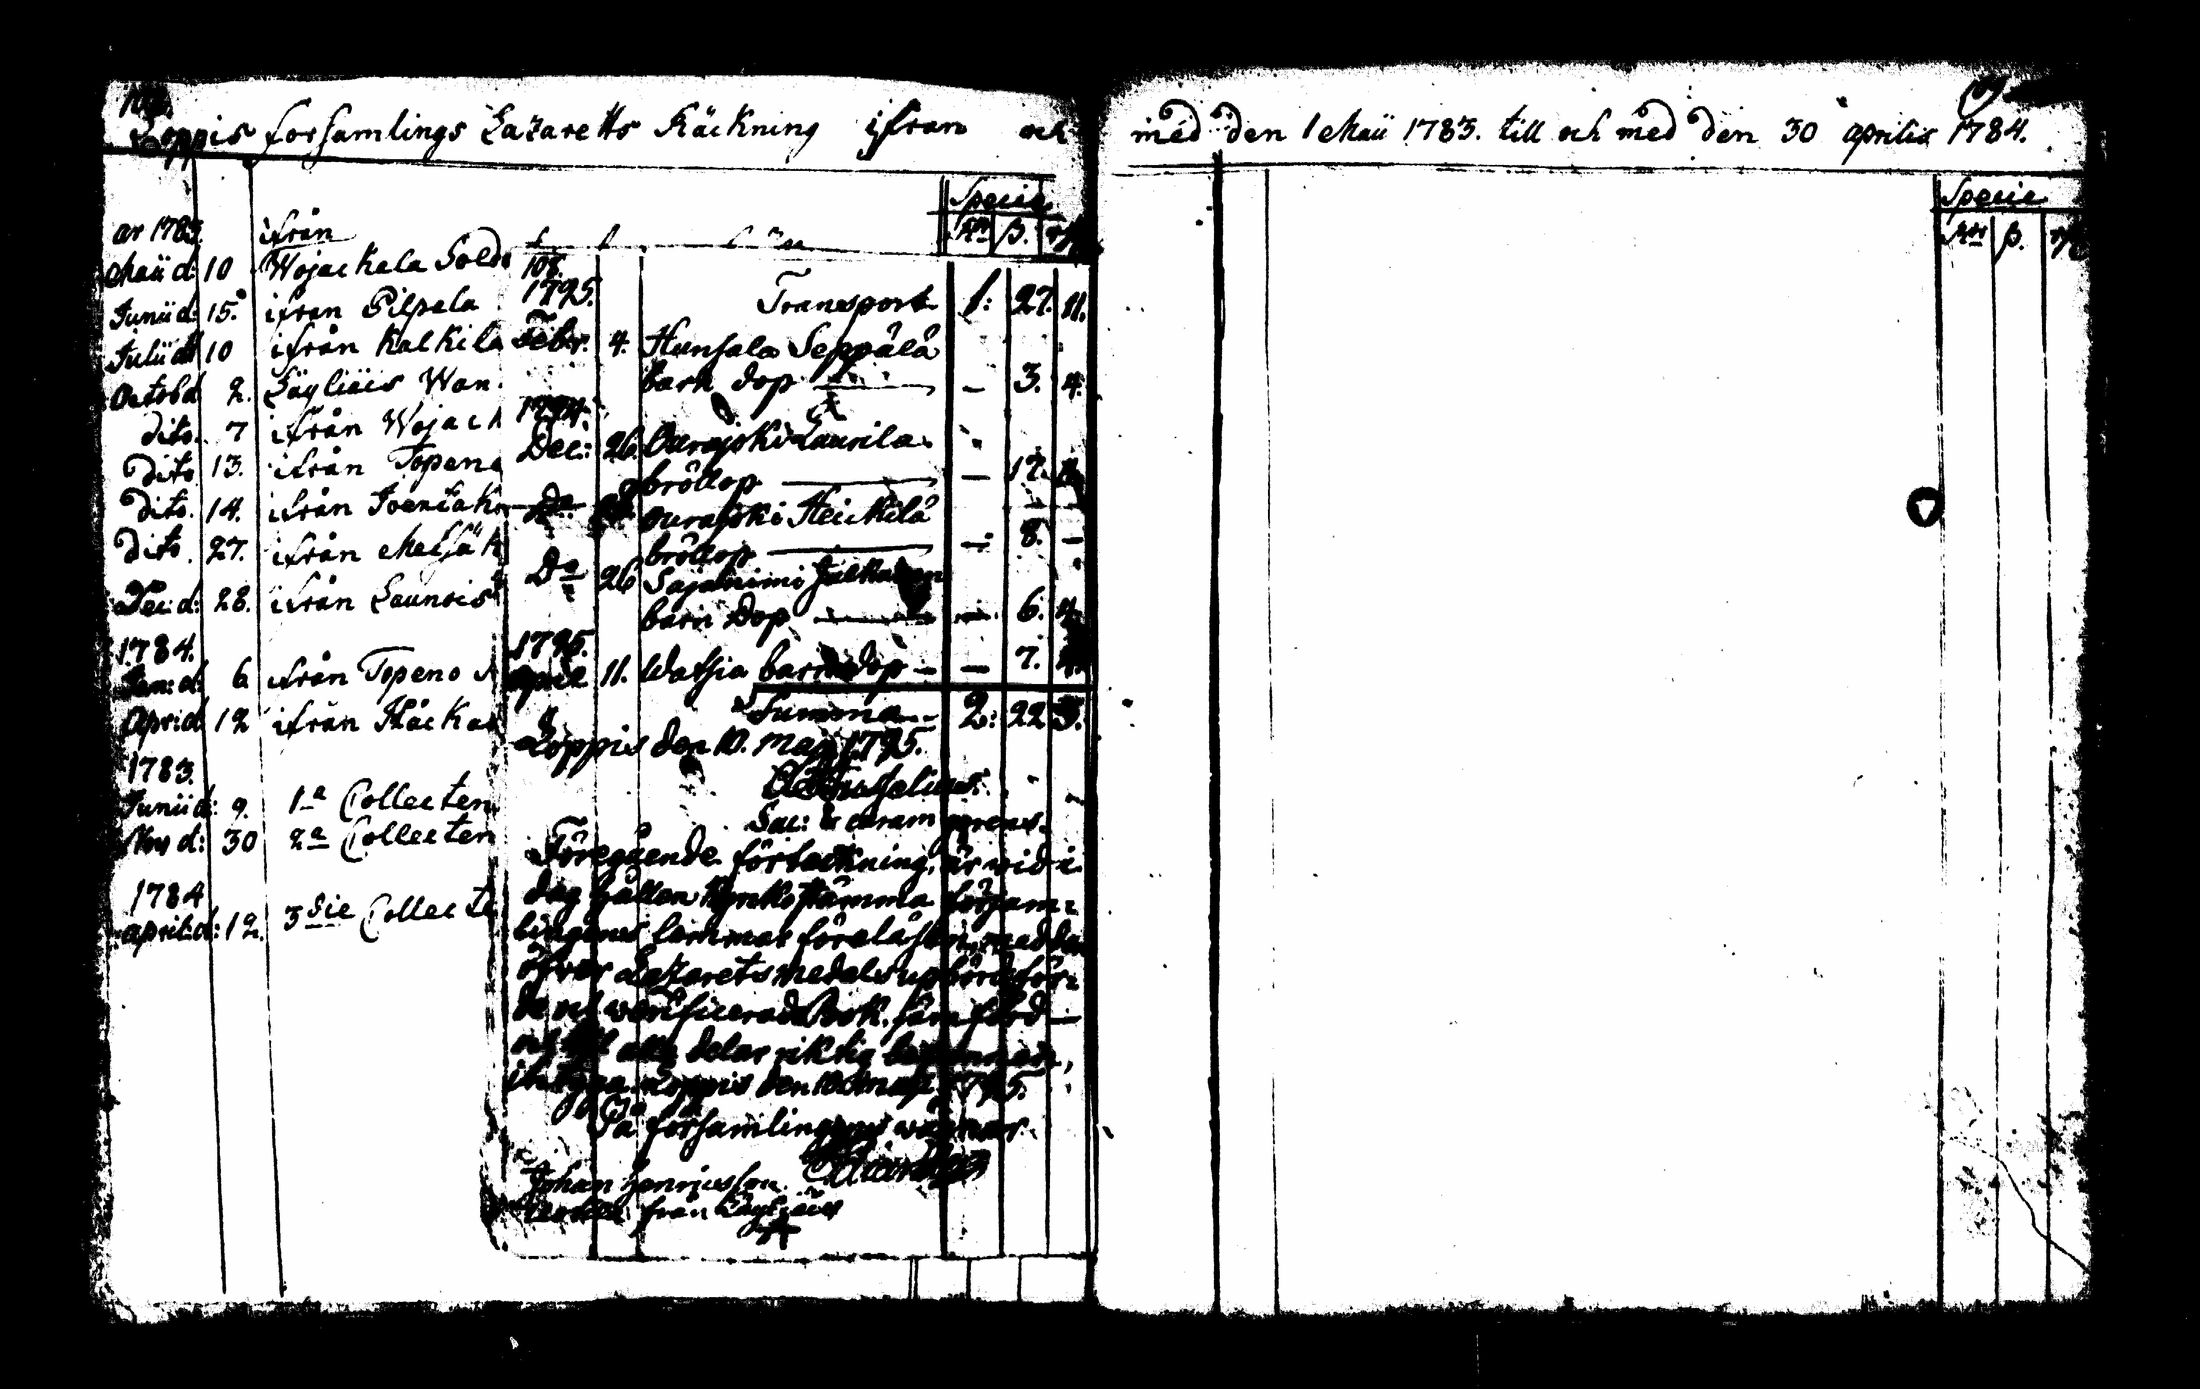 Loppis församlings Lazaretts Räckning ifrån och
med den 1 Maii 1783. till och med den 30 aprilis 1784.
Specie
Rdr ß. rst
år 1783. ifrån
Maii d: 10 Wojackala Sold
Junii d: 15. ifrån Pilpala
Julii d 10 ifrån Kalkila
Octob d 2. Läyliäis Wan
dito. 7 ifrån Wojack
dito 13. ifrån Topeno
dito. 14. ifrån
dito. 27. ifrån
Dec: d: 28. ifrån Launois
1784.
Jan: d: 6 ifrån Topeno
April d 12 ifrån Räckä
1783.
Junii d: 9. 1a Collecten
Nov d: 30 2a Collecten
1784
april: d: 12. 3die Collecte
108.
1795. Transport 1: 27. 11.
Febr. 4. Hunsala Seppälä
barn dop — 3. 4.
1794.
Dec: 26. Ourajoki Laurila
bröllop — 17.
Do Ourajoki Heickilä
bröllop — 8. —
Do 26 Sajaniemi
barn dop — 6. 4.
1795.
April 11. Watsia barn dop — 7.
Summa 2: 22 3.
Loppis den 10. May 1795.
Föregående förteckning, är wid i
dag hållen Kyrkostämma försam=
lingenes lemmar föreläsen, med den
öfver Lazarets medels upbörd för=
de och verificerade Bok jämförd
och till alla delar riktig befunnen,
intyga Loppis den 10 May 1795.
På församlingenes wägnar
Johan Henricsson
från Läyliäis
Specie
Rdr ß. rst